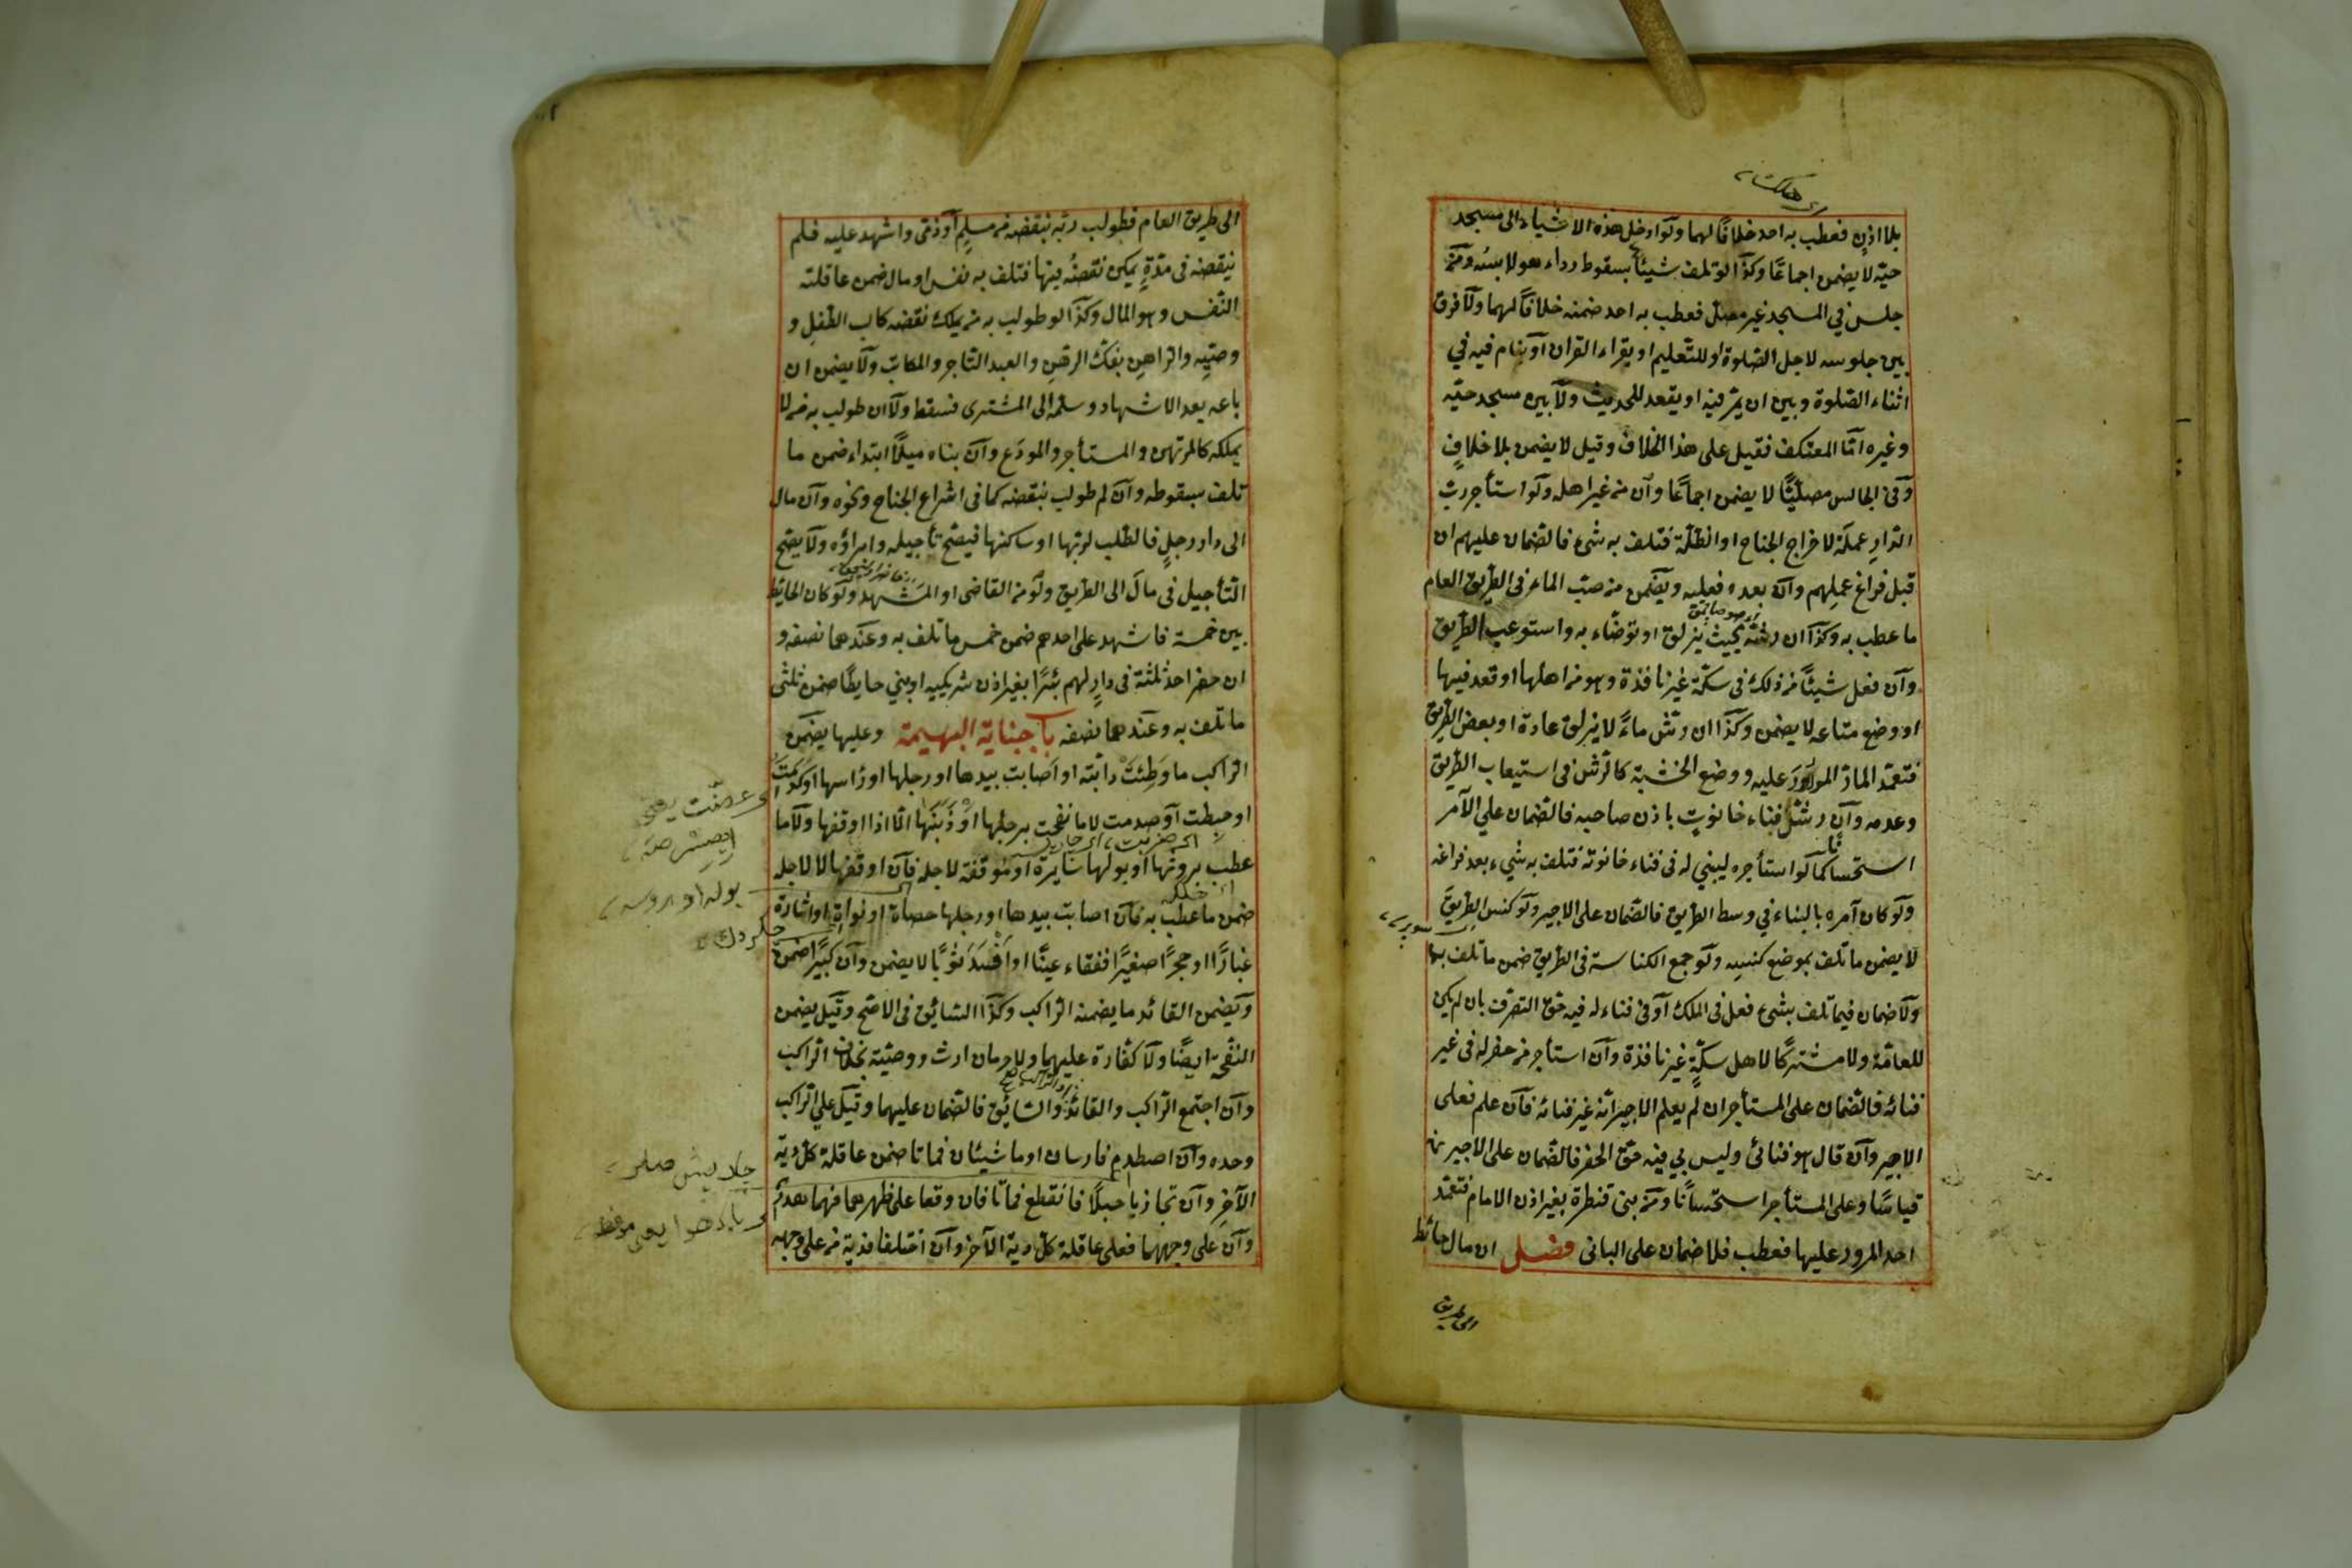 بلا اذن فعطب به احد خلافًا لهما ولو ادخل هذه الاشياء الى مسجد
حيّه لا يضمن اجماعًا وكذا لو تلف شيئًا بسقوط رداء هو لابسه ومن
جلس في المسجد غير مصلّ فعطب به احد ضمنه خلافًا لهما ولا فرق
بين جلوسه لاجل الصلوة او للتعليم او يقراء القران او ينام فيه في
اثناء الصلوة وبين ان يمرّ فيه او يقعد للحديث ولا بين مسجد حيّه
وغيره امّا المعتكف فقيل على هذا الخلاف وقيل لا يضمن بلا خلافٍ
وفى الجالس مصلّيًا لا يضمن اجماعًا وان من غير اهله ولو استأجر ربّ
الدارِ عملة لاخراج الجناح او الظلّة فتلف به شئ فالضمان عليهم ان
قبل فراغ عملهم وان بعده فعليه ويضمن من صبّ الماء فى الطريق العام
ما عطب به وكذا ان رشّه بحيث يزلق او توضّاء به واستوعب الطريق
وان فعل شيئًا من ذلك فى سكّة غير نافذة وهو من اهلها او قعد فيها
او وضع متاعه لا يضمن وكذا ان رشّ ماءً لا يزلق عادة او بعض الطريق
فتعمّد المارّ المرور عليه ووضع الخشبة كالرشّ فى استيعاب الطريق
وعدمه وان رشّ فناء حانوتٍ باذن صاحبه فالضمان على الآمر
استحسانًا كما لو استأجره ليبني له فى فناء حانوته فتلف به شيء بعد فراغه
ولو كان آمره بالبناء في وسط الطريق فالضمان على الاجير ولو كنس الطريق
لا يضمن ما تلف بموضع كنسه ولو جمع الكناسة فى الطريق ضمن ما تلف بها
ولا ضمان فيما تلف بشئ فعل فى الملك او فى فناء له فيه حق التصرف بان لم يكن
للعامّة ولا مشتركًا لاهل سكّةٍ غير نافذة وان استأجر من حفر له فى غير
فنائه فالضمان على المستأجر ان لم يعلم الاجير انّه غير فنائه فان علم فعلى
الاجير وان قال هو فنائى وليس لي فيه حق الحفر فالضمان على الاجير
قياسًا وعلى المستأجر استحسانًا ومن بنى قنطرة بغير اذن الامام فتعمّد
احد المرور عليها فعطب فلا ضمان على البانى فصل ان مال حائط
الى طريق
الى طريق العام فطولب ربّه بنقضه من مسلم او ذمّى واشهد عليه فلم
ينقضه فى مدّةٍ يمكن نقضُه فيها فتلف به نفس او مال ضمن عاقلته
النفس وهو المال وكذا لو طولب به من يملك نقضه كاب الطفلِ و
وصيِّه والراهن بفكّ الرهنِ والعبد التاجر والمكاتب ولا يضمن ان
باعه بعد الاشهاد وسلّمه الى المشترى فسقط ولا ان طولب به من لا
يملكه كالمرتهن والمستأجر والمودَع وان بناه ميلًا ابتداء ضمن ما
تلف بسقوطه وان لم طولب بنقضه كما فى اشراع الجناح ونحوه وان مال
الى دار رجلٍ فالطلب لربّها او ساكنها فيصحّ تأجيله وابراؤه ولا يصح
التأجيل فى مال الى الطريق ولو من القاضى او المشهد ولو كان الحائط
بين خمسة فاشهد على احدهم ضمن خمس ما تلف به وعندهما نصفه و
ان حفر احد ثلثة فى دارٍ لهم بئرًا بغير اذن شريكيه او بني حايطًا ضمن ثلثى
ما تلف به وعندهما نصفه باب جناية البهيمة وعليها يضمن
الراكب ما وَطِئت دابّته او اصابت بيدها او رجلها او رأسها او كدمت
او خبطت او صدمت لا ما نفحت برجلها او ذنبها الّا اذا اوقفها ولا ما
عطب بروثها او بولها سايرة او موقفة لاجله فان اوقفها لا لاجله
ضمن ما عطب به فان اصابت بيدها او رجلها حصاة او نواة او اثارة
غبارًا او حجرًا صغيرًا ففقاء عينًا او افسد ثوبًا لا يضمن وان كبيرًا ضمن
ويضمن القائد ما يضمنه الراكب وكذا السائق فى الاصح وقيل يضمن
النفحة ايضًا ولا كفّارة عليهما ولا حرمان ارث ووصيّة بخلاف الراكب
وان اجتمع الراكب والقائد والسائق فالضمان عليهما وقيل على الراكب
وحده وان اصطدم فارسان او ماشيان فماتا ضمن عاقلة كل دية
الآخر وان تجاذبا حبلًا فانقطع فماتا فان وقعا على ظهرهما فهما هدر
وان على وجههما فعلى عاقلة كل دية الآخر وان اختلفا فدية من على وجهه
بوله او بروسه